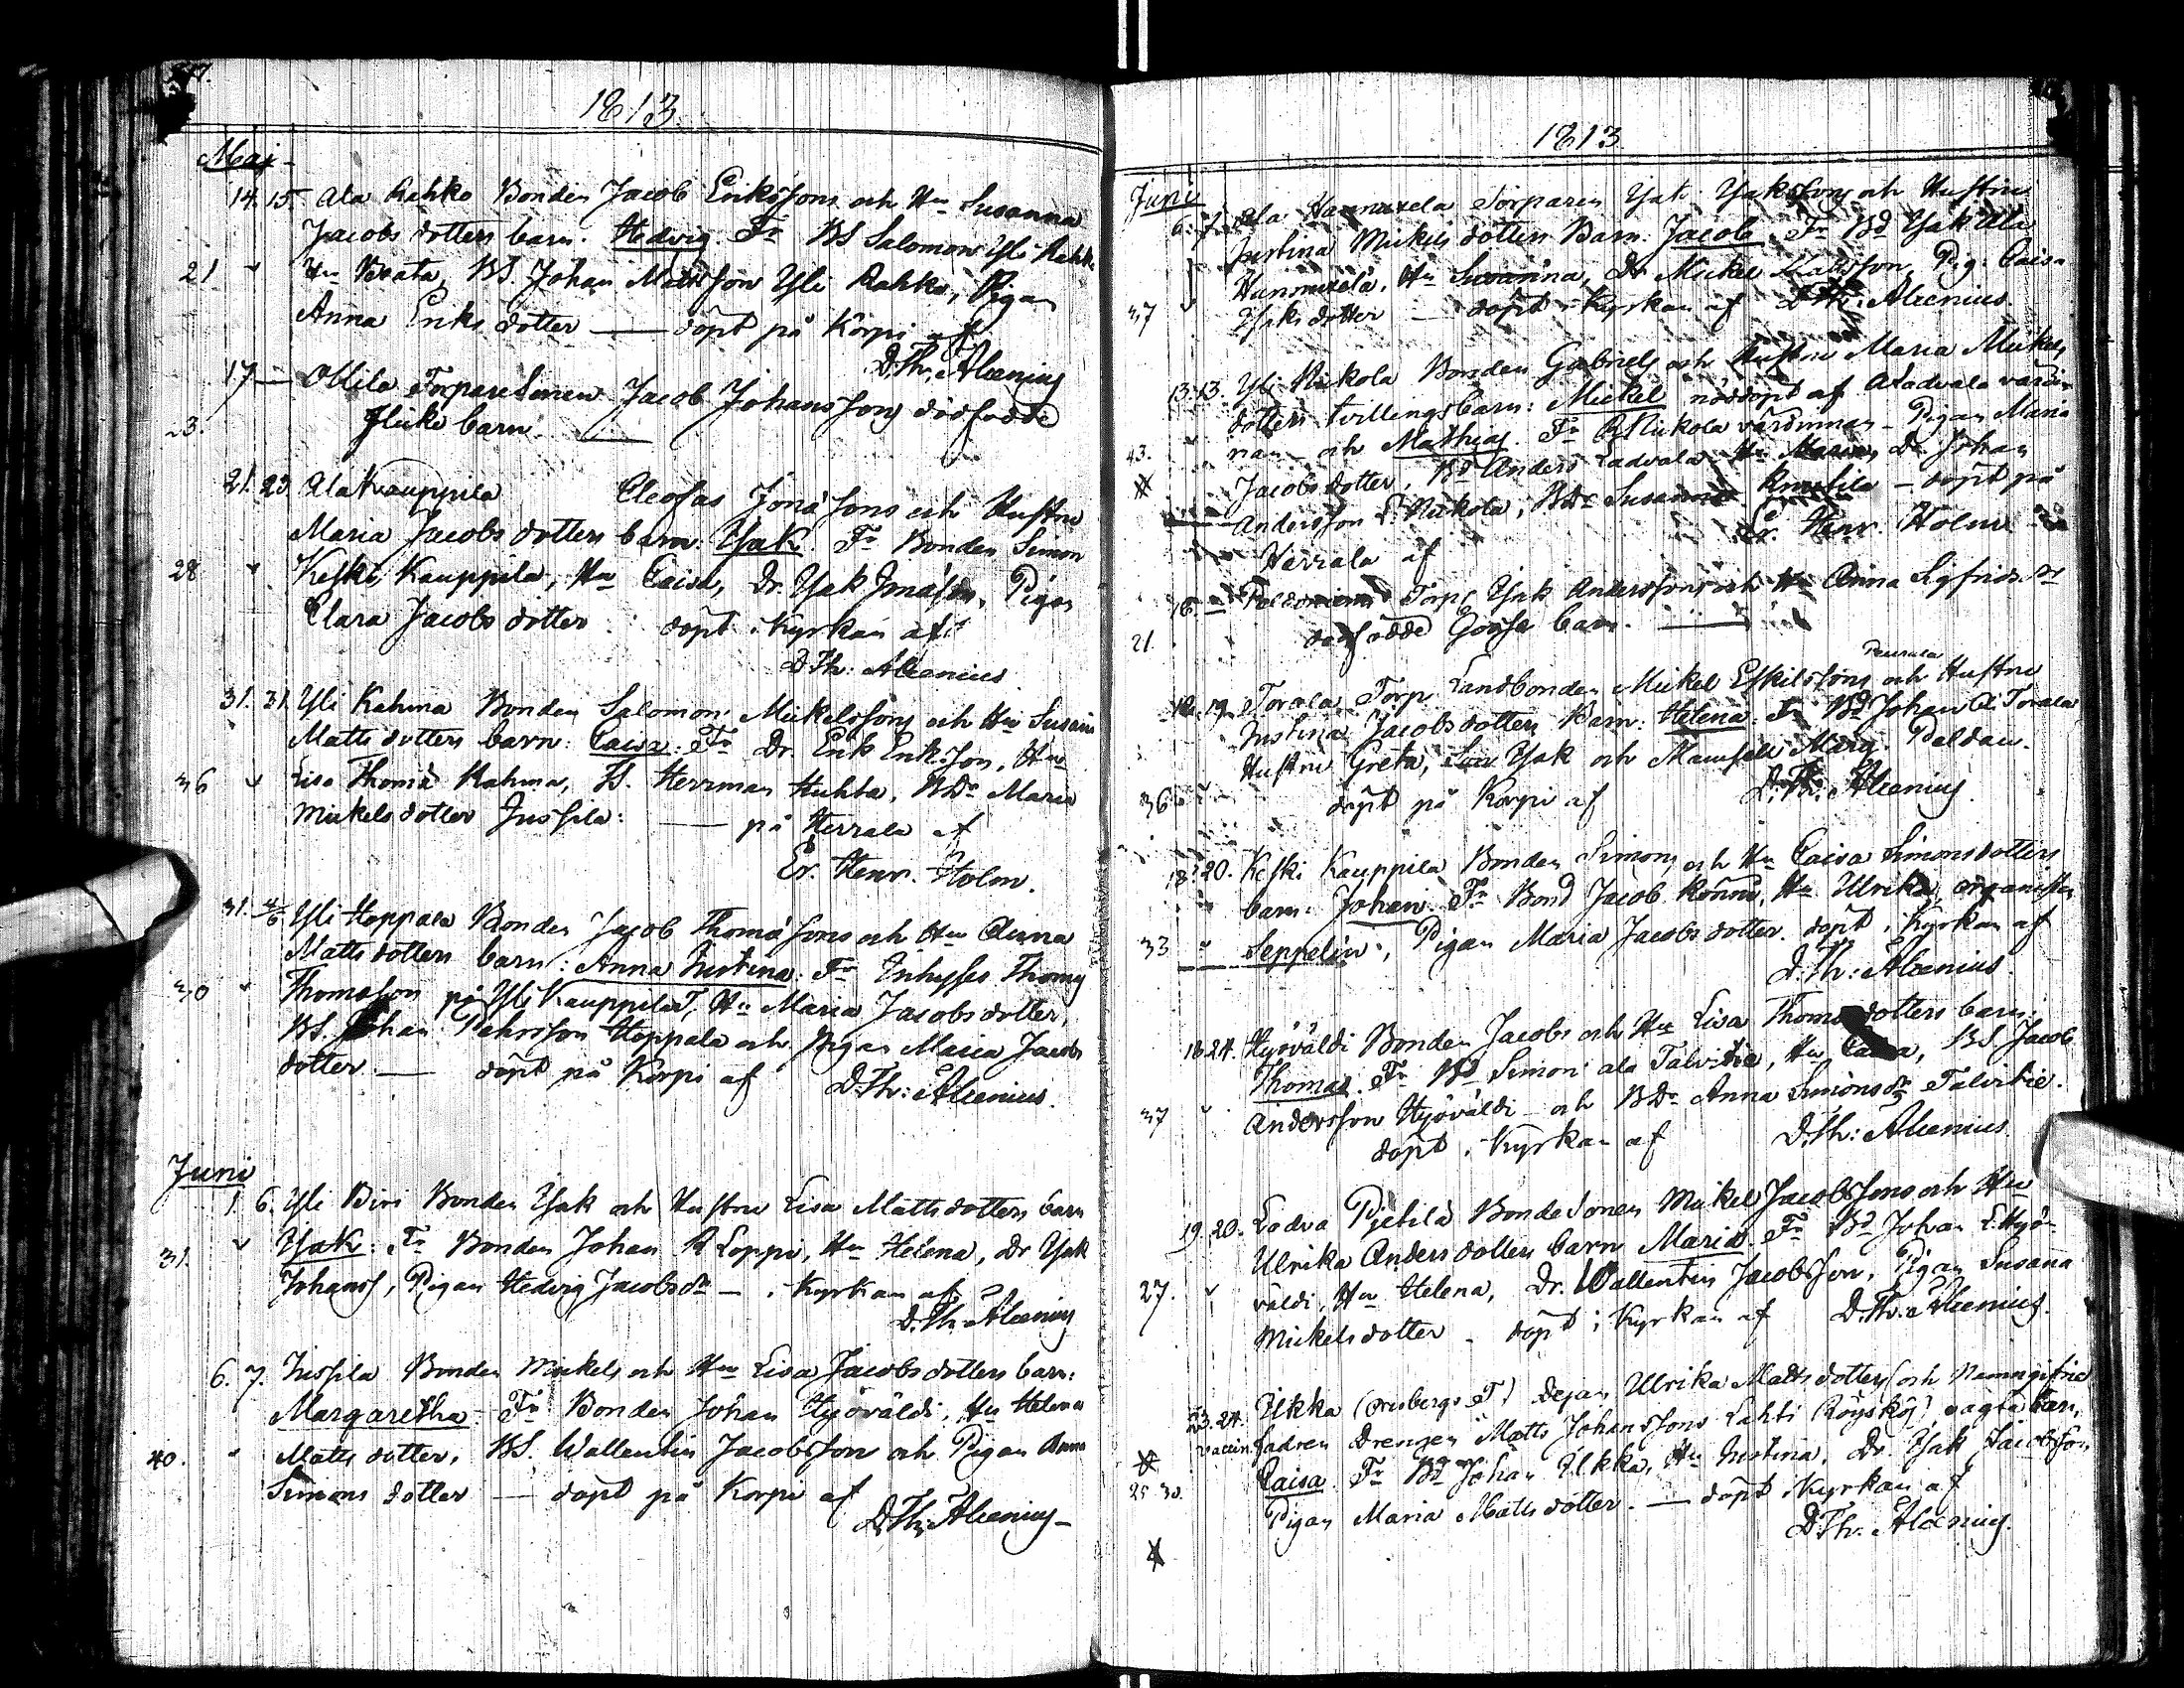 1813.
Maj
14. 15. Ala Rahko Bonden Jacob Erikssons och Hu Susanna
Jacobs dotters barn. Hedvig. Fr BS Salomon Yli Rahko
21 Hu Beata, BS. Johan Mattsson Yli Rahko, Pigan
Anna Eriks dotter — döpt på Korpi af
D. Th. Alcenius
17 — Ollila TorpareSonen Jacob Johanssons dödfödde
23. flicke barn.
21. 23 Ala Kauppila Cleofas Jonässons och Hustru
Maria Jacobs dotters barn. Isak. Fr Bonden Simon
28 Keski Kauppila, Hu Caisa, Dr. Isak Jonässon, Pigan
Clara Jacobs dotter döpt i Kyrkan af
D Th: Alcenius
31. 31. Yli Rahma Bonden Salomon Mickelssons och Hu Susanna
Matts dotters barn: Caisa: Fr Dr. Erik Eriksson, Hu
36 Lisa Thomä Rahma, B. Herrman Huhta, BDr Maria
Mickels dotter Jussila: — på Herrala af
Er. Henr. Holm.
31. 4/6 Yli Hoppala Bonden Jacob Thomä sons och Hu Anna
Matts dotters barn: Anna Justina: Fr Inhyses Thomas
30 Thomasson på Yli Kauppila T, Hu Maria Jacobs dotter,
BS. Johan Pehrsson Hoppala och Pigan Maria Jacobs
dotter — döpt på Korpi af D. Th: Alcenius.
Juni
1. 6. Yli Biri Bonden Isak och Hustru Lisa Matts dotters barn
31. Isak: Fr Bonden Johan A Loppi, Hu Helena, Dr Isak
Johanss, Pigan Hedvig Jacobs dr — i Kyrkan af
D. Th. Alcenius
6. 7. Jussila Bonden Mickels och Hu Lisa Jacobs dotters barn:
Margaretha Fr Bonden Johan Hyöväldi, Hu Helena
40. Matts dotter, BS. Wallentin Jacobsson och Pigan Anna
Simons dotter — döpt på Korpi af
D. Th: Alcenius —
1813
Juni
6. 7. Ala Hannuxela Torparen Isak Isakssons och Hustru
Justina Mickels dotters Barn: Jacob. Fr Bd Isak Ala
Hannuxela, Hu Susanna, Dr Mickel Mattsson, Pig: Caisa
37 Isaks dotter — döpt i Kyrkan af D Th: Alcenius.
13. 13. Yli Nickola Bonden Gabriels och Hustru Maria Mickels
dotters tvillingsbarn: Mickel nöddöpt af Aladvala värdin
43. nan och Mathias. Fr A Nickola värdinnan — Pigan Maria
Jacobs dotter, Bd Anders Ladvala Hu Maria, Dr Johan
Andersson L. Nickola, BDr Susanna — döpt på
Herrala af Er. Henr. Holm
16. — Torp. Isak Anderssons och Hu Anna Sigfrids dr
21. dödfödde Gosse barn. —
18. 19. Torala Torp. Landbonden Mickel Eskilssons och Hustru
Justina Jacobs dotters Barn: Helena: Fr Bd Johan A Torala
Hustru Greta, Son Isak och Mamsell Marg. Peldan.
36 döpt på Korpi af D. Th. Alcenius
18. 20. Keski Kauppila Bonden Simons och Hu Caisa Simonsdotters
barn: Johan. Fr Bond Jacob Könni, Hu Ulrika, organisten
33 Seppelin, Pigan Maria Jacobs dotter. döpt i Kyrkan af
D. Th: Alcenius
18. 24. Hyöväldi Bonden Jacobs och Hu Lisa Thomä dotters barn:
Thomas. Fr Bd Simon ala Talvitie, Hu Caisa, BS Jacob
37 Andersson Hyöväldi och BDr Anna Simons dr Talvitie.
döpt i Kyrkan af D. Th: Alcenius
19. 20. Lodva Pjetilä BondeSonen Mickel Jacobssons och Hu
Ulrika Anders dotters barn Maria. Fr Bd Johan L Hyö-
27. väldi, Hu Helena, Dr. Wallentin Jacobsson, Pigan Susanna
Mickels dotter — döpt i Kyrkan af D. Th: Alcenius
23. 24. Ukka (Orisbergs T) Dejan Ulrika Matts dotters (och Namngifne
vaccin. fadren Drengen Matts Johanssons Lahti (Röyskö) oägta barn,
Caisa. Fr Bd Johan Ukka, Hu Justina, Dr. Isak Jacobsson
25 30. Pigan Maria Matts dotter. — döpt i Kyrkan af
D. Th. Alcenius.